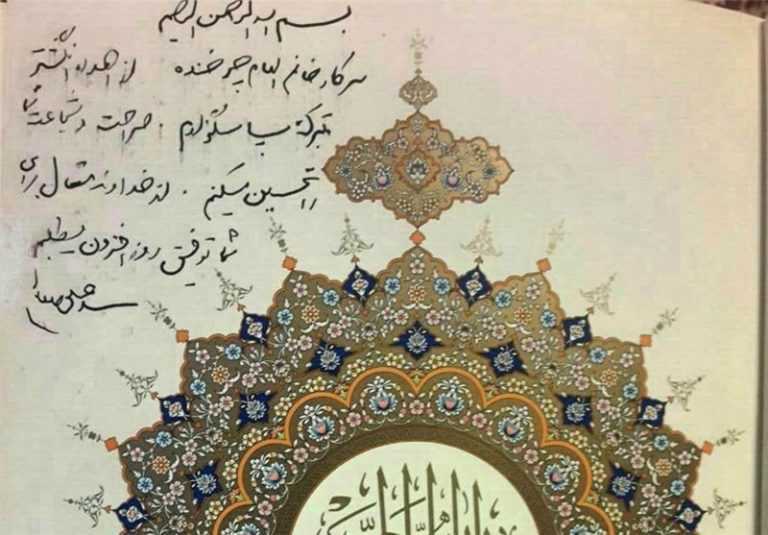 بسم الله الرحمن الرحیم
سرکار خانم الهام چرخنده از اهداء انگشتر
متبرکتان سپاسگزارم. صراحت و شجاعت شما
را تحسین میکنم. از خداوند متعال برای
شما توفیق روزافزون میطلبم
سید علی